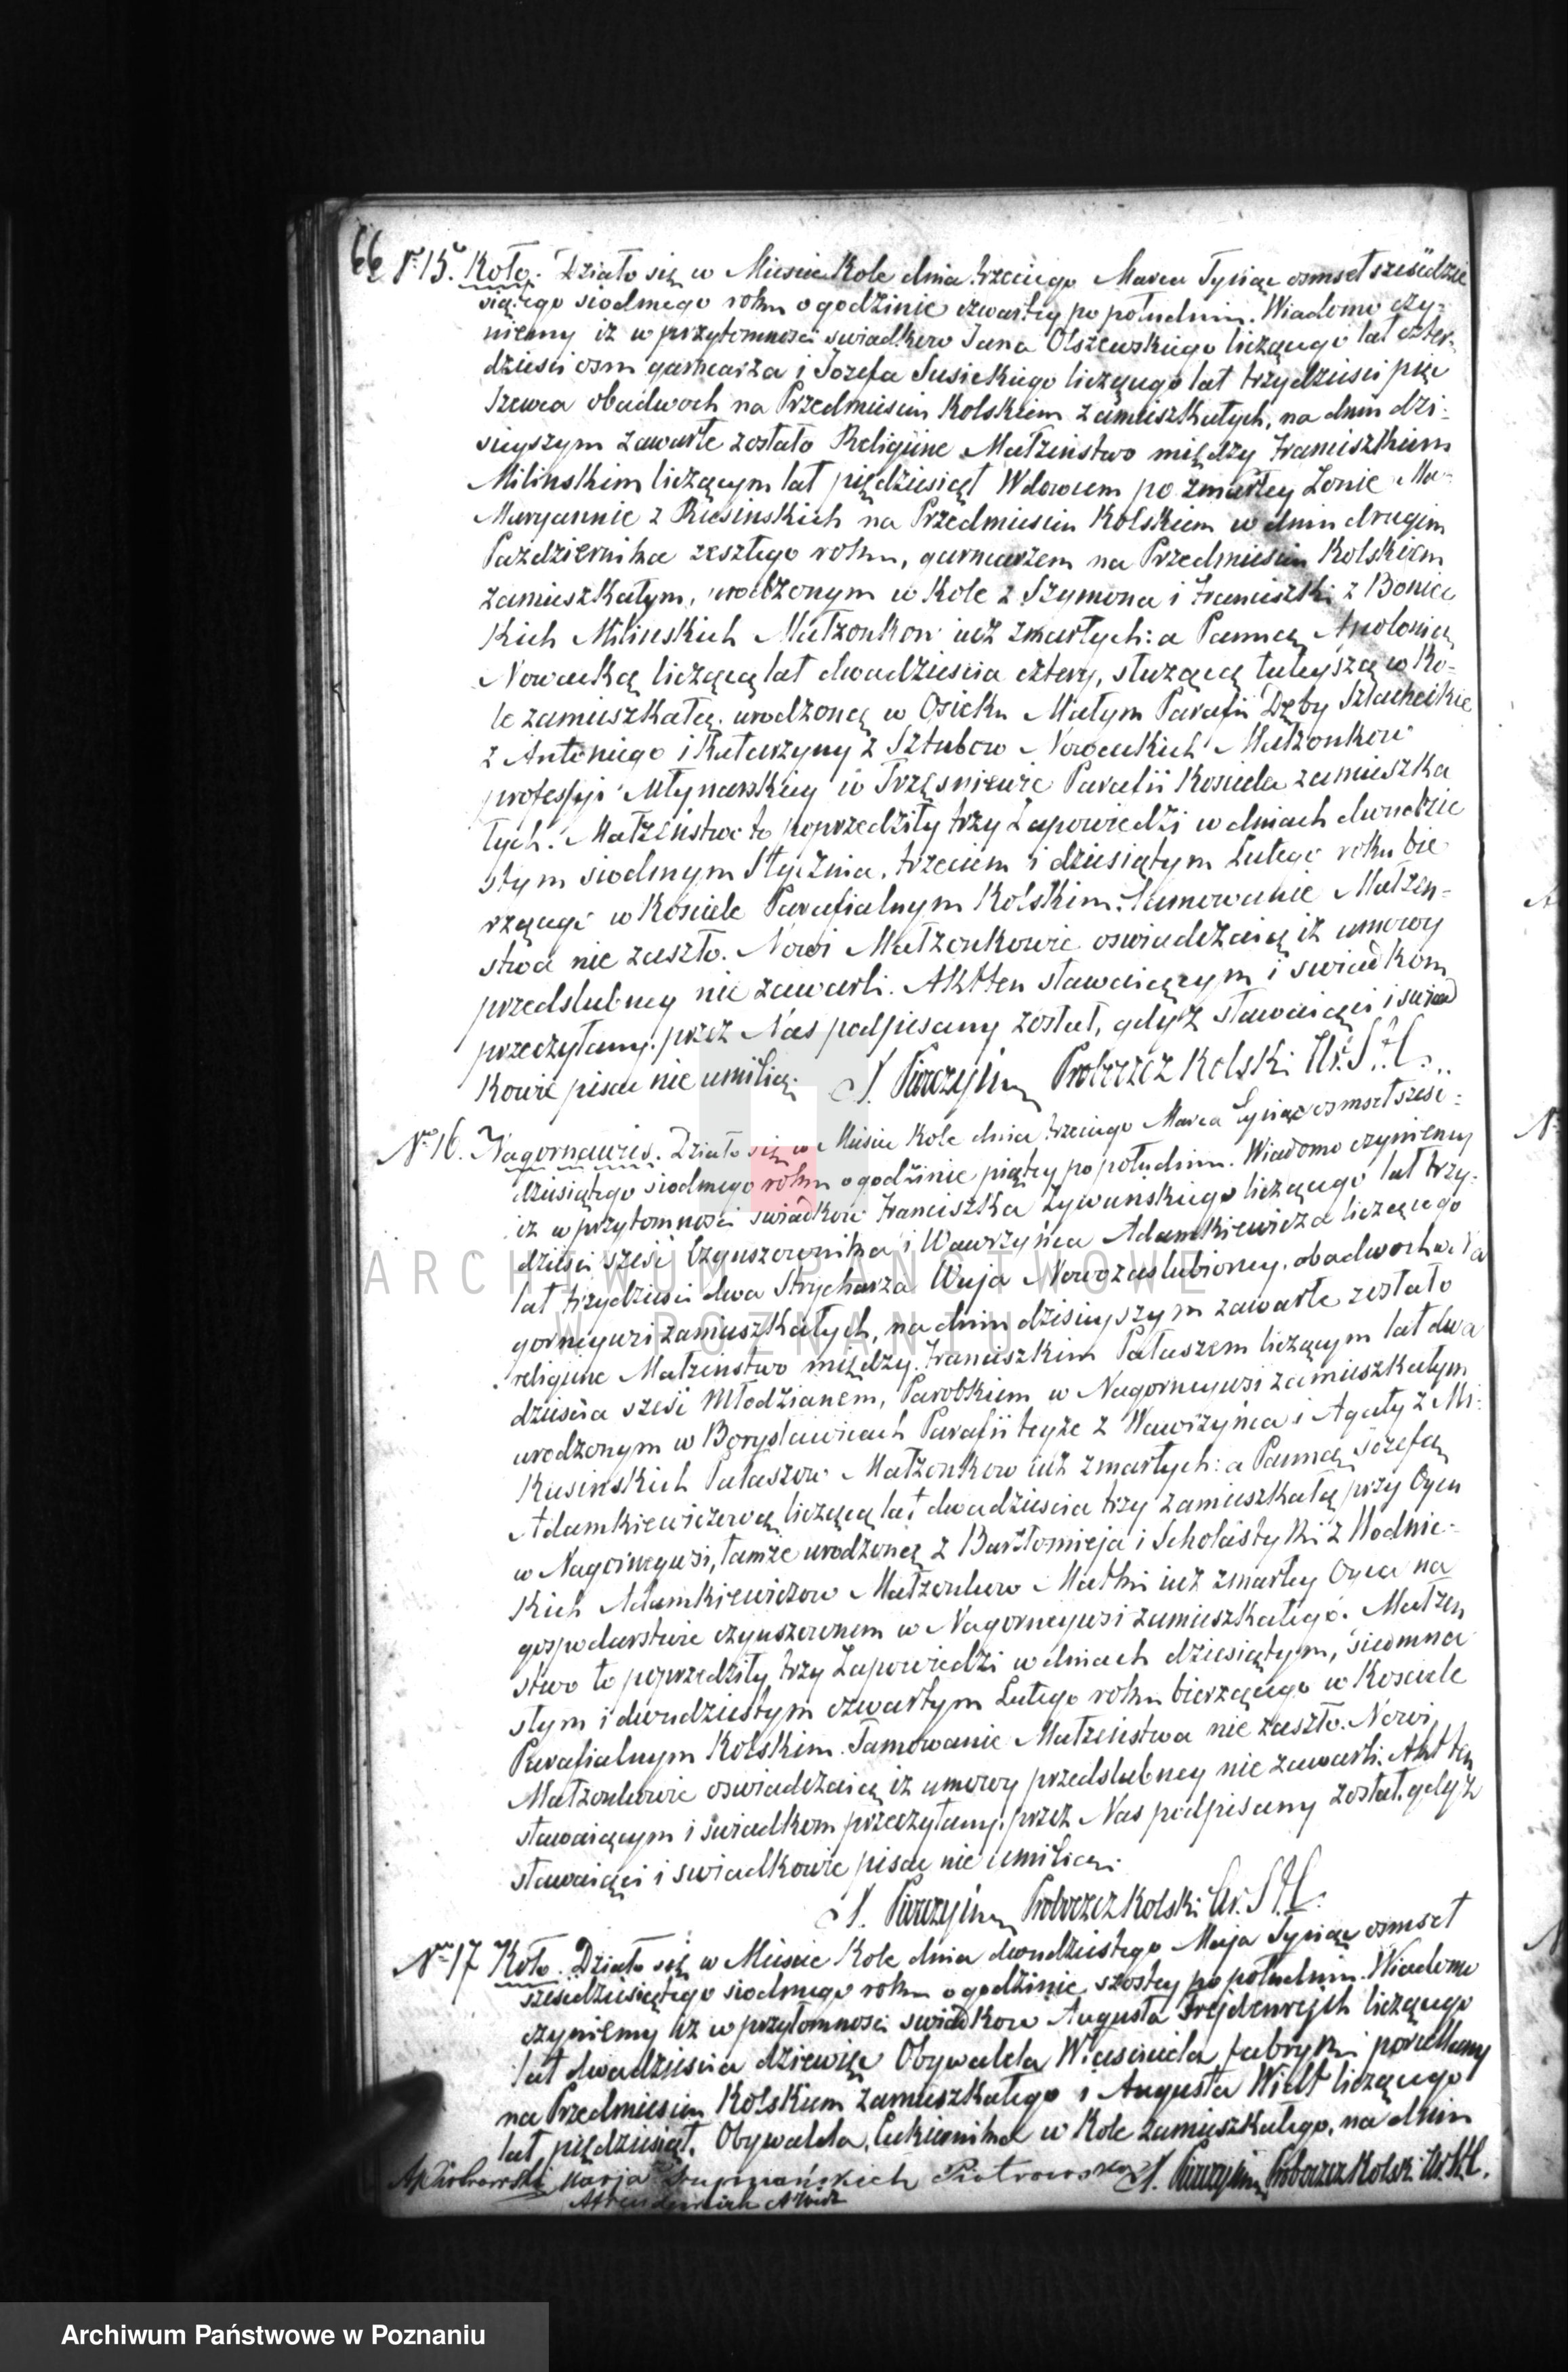 66 Nr 15. Koło. Działo się w Mieście Kole dnia trzeciego Marca Tysiąc osmset sześcdzie
siątego siodmego roku o godzinie czwartey po południu. Wiadomo czy-
niemy iż w przytomnosci swiadkow Jana Olszewskiego liczącego lat czter-
dziesci osm garncarza i Jozefa Susickiego liczącego lat trzydziesci pięć
Szewca obudwoch na Przedmiesciu Kolskiem zamieszkałych, na dniu dzi-
sieyszym zawarte zostało Religijne Małżeństwo między Franciszkiem
Milinskim liczącym lat pięćdziesiąt Wdowcem po zmarłey Żonie Ma-
Maryannie z Rusinskich na Przedmiesciu Kolskiem w dniu drugim
Pazdziernika zeszłego roku, garncarzem na Przedmiesciu Kolskiem
zamieszkałym, urodzonym w Kole z Szymona i Franciszki z Boniec
kich Milinskich Małżonkow iuż zmarłych: a Panną Apolonią
Nowacką liczącą lat dwadziescia cztery, służącą tuteyszą w Ko-
le zamieszkałą, urodzoną w Osieku Małym Parafii Dęby Szlacheckie
z Antoniego i Katarzyny z Sztubow Nowackich Małżonkow
professyi Młynarskiey w Trzęsniewie Parafii Kosciela zamieszka
łych. Małżeństwo to poprzedziły trzy Zapowiedzi w dniach dwudzie
stym siodmym Stycznia, trzeciem i dziesiątym Lutego roku bie
rzącego w Kosciele Parafialnym Kolskim. Tamowanie Małżen-
stwa nie zaszło. Nowi Małżonkowie oswiadczaią iż umowy
przedslubney nie zawarli. Akt ten stawaiącym i swiadkom
przeczytany, przez Nas podpisany został, gdyż stawaiący i swiad
kowie pisac nie umieią. Proboszcz Kolski Ur. S. C.
Nr 16. Nagornawies. Działo się w Mieście Kole dnia trzeciego Marca Tysiąc osmset szesc-
dziesiątego siodmego roku o godzinie piątey po południu. Wiadomo czyniemy
iż w przytomnosci swiadkow Franciszka Zywanskiego liczącego lat trzy-
dziesci szesc Czynszownika i Wawrzyńca Adamkiewicza liczącego
lat trzydziesci dwa Strycharza Wuja Nowozaslubioney, obadwoch w Na
gorneywsi zamieszkałych, na dniu dzisieyszym zawarte zostało
religijne Małżeństwo między Franciszkiem Pałaszem liczącym lat dwa
dziescia szesc Młodzianem, Parobkiem w Nagorneywsi zamieszkałym
urodzonym w Borysławicach Parafii teyże z Wawrzyńca i Agaty z Mi-
kusinskich Pałaszow Małżonkow iuż zmarłych: a Panną Jozefą
Adamkiewiczową liczącą lat dwadziescia trzy zamieszkałą przy Oycu
w Nagorneywsi, tamże urodzoną z Bartłomieja i Scholastyki z Wodnic-
kich Adamkiewiczow Małżonkow Matki iuż zmarłey Oyca na
gospodarstwie czynszownem w Nagorneywsi zamieszkałego. Małżen
stwo to poprzedziły trzy Zapowiedzi w dniach dziesiątym, siedmna
stym i dwudziestym czwartym Lutego roku bierzącego w Kosciele
Parafialnym Kolskim. Tamowanie Małżeństwa nie zaszło. Nowi
Małżonkowie oswiadczaią iż umowy przedslubney nie zawarli. Akt ten
stawaiącym i swiadkom przeczytany, przez Nas podpisany został, gdyż
stawaiący i swiadkowie pisac nie umieią.
Proboszcz Kolski Ur. S. C.
Nr 17 Koło. Działo się w Mieście Kole dnia dwudziestego Maja Tysiąc osmset
szescdziesiątego siodmego roku o godzinie szostey po południu. Wiadomo
czyniemy iż w przytomnosci swiadkow Augusta Frejdenreych liczącego
lat dwadziescia dziewięć Obywatela Własciciela fabryki
na Przedmiesciu Kolskiem zamieszkałego i Augusta liczącego
lat pięćdziesiąt, Obywatela, Cukiernika w Kole zamieszkałego, na dniu
Piotrowski Marja Piotrowska Proboszcz Kolski
ARCHIWUM PAŃSTWOWE
W POZNANIU
Archiwum Państwowe w Poznaniu